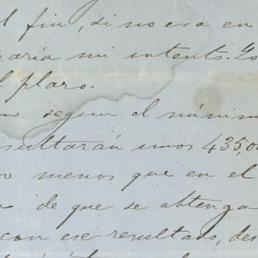 l fin, si no era en
raría mi intento. Yo
l plazo.
segun el mínim
sultarán unos 435,0
o menos que en el
de que se obtenga
con ese resultado, des